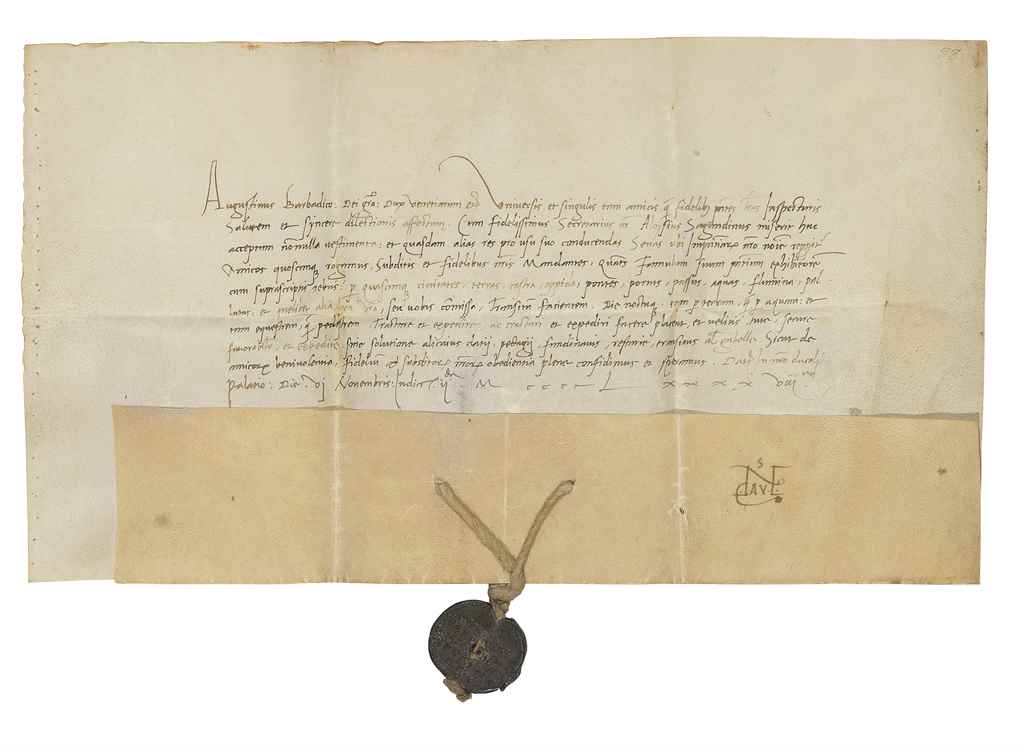 Augustinus Barbadico: Dei gra: Dux Venetiarum etc̃ Universis et singulis tam amicis q̃ fidelib; Inspecturis
Salutem et Syncere dilectionis affectum. Cum fidelissimus Secretarius nr̃ Aloisius Sagundinus miserit huc
acceptum nõnnulla vestimenta: et quasdam alias res pro usu suo conducendas Senas ubi
Amicos quoscunq; rogamus, Subditis et fidelibus nr̃is Mandantes, Famulum suum exhibitorem
cum suprascriptis rebus: p quascunq; civitates, terras, castra, oppida, pontes, portus, passus, aquas, flumina, pal
ludes, et seu vobis cõmissa, Transitum facientem, Die noctuq;, tam p terram, q̃ p aquam: et
tam equestrem, q̃ pedestrem, Tractare et expedire, ac tractari et expediri facere placeat, et velitis, tute, secure
favorabiliter, et expedite, sine solutione alicuius datij, pedagij, fundinavis, gabelle, Sicut de
amicorꝝ benivolentia, fidelium et subditorꝝ nr̃orꝝ obedientia plene confidimus et speramus. Dat̃ in nr̃o ducali
Palatio: Die. vj Novembris: Indict̃. ij M cccc L xxxx viij
S